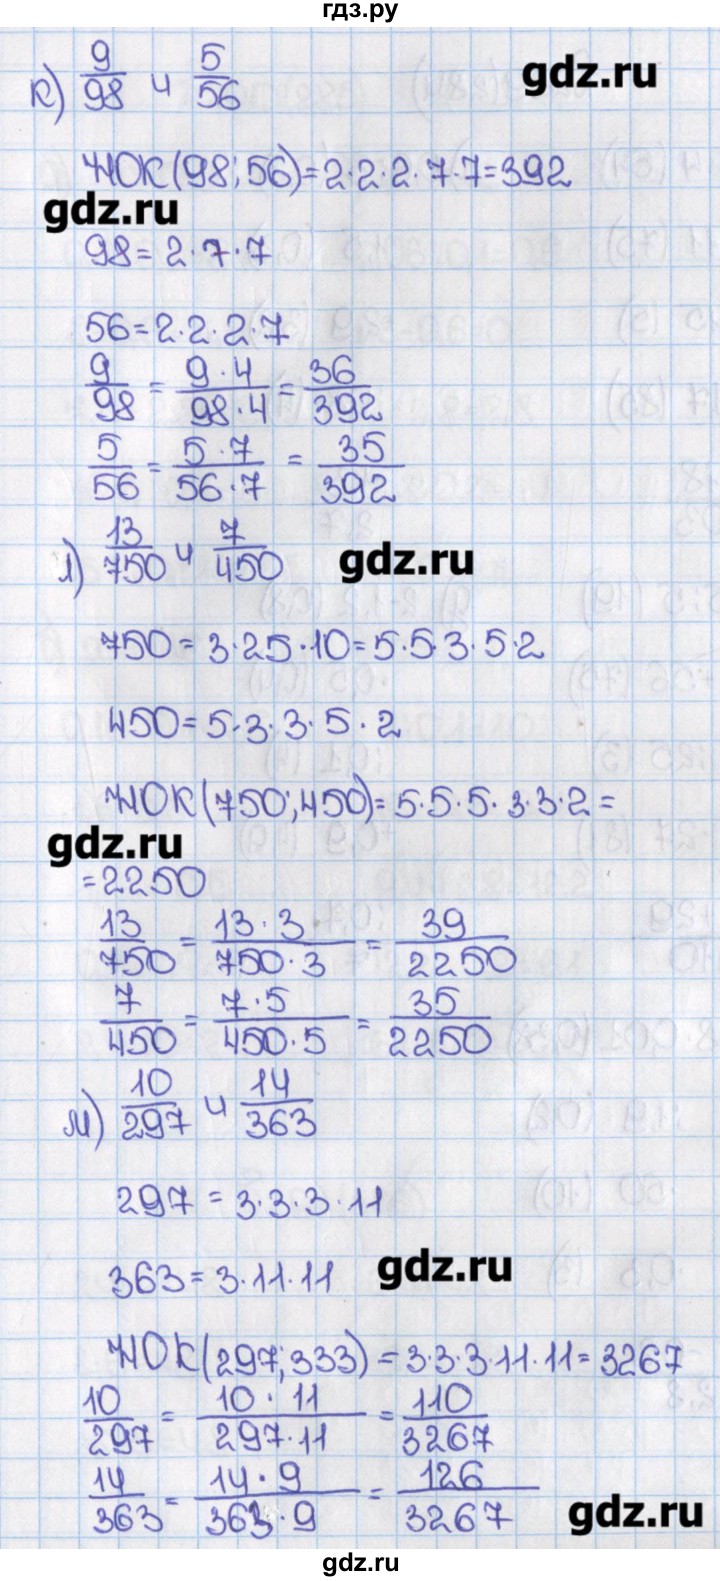 гдз.ру
к) 9/98 и 5/56
gdz.ru
НОК(98;56)=2·2·2·7·7=392
gdz.ru
98=2·7·7
56=2·2·2·7
9/98 = 9·4/98·4 = 36/392
5/56 = 5·7/56·7 = 35/392
л) 13/750 и 7/450
gdz.ru
750=3·25·10=5·5·3·5·2
450=5·3·3·5·2
НОК(750;450)=5·5·5·3·3·2=
gdz.ru
=2250
13/750 = 13·3/750·3 = 39/2250
7/450 = 7·5/450·5 = 35/2250
м) 10/297 и 14/363
297=3·3·3·11
363=3·11·11
gdz.ru
НОК(297;333)=3·3·3·11·11=3267
10/297 = 10·11/297·11 = 110/3267
14/363 = 14·9/363·9 = 126/3267
gdz.ru
gdz.ru